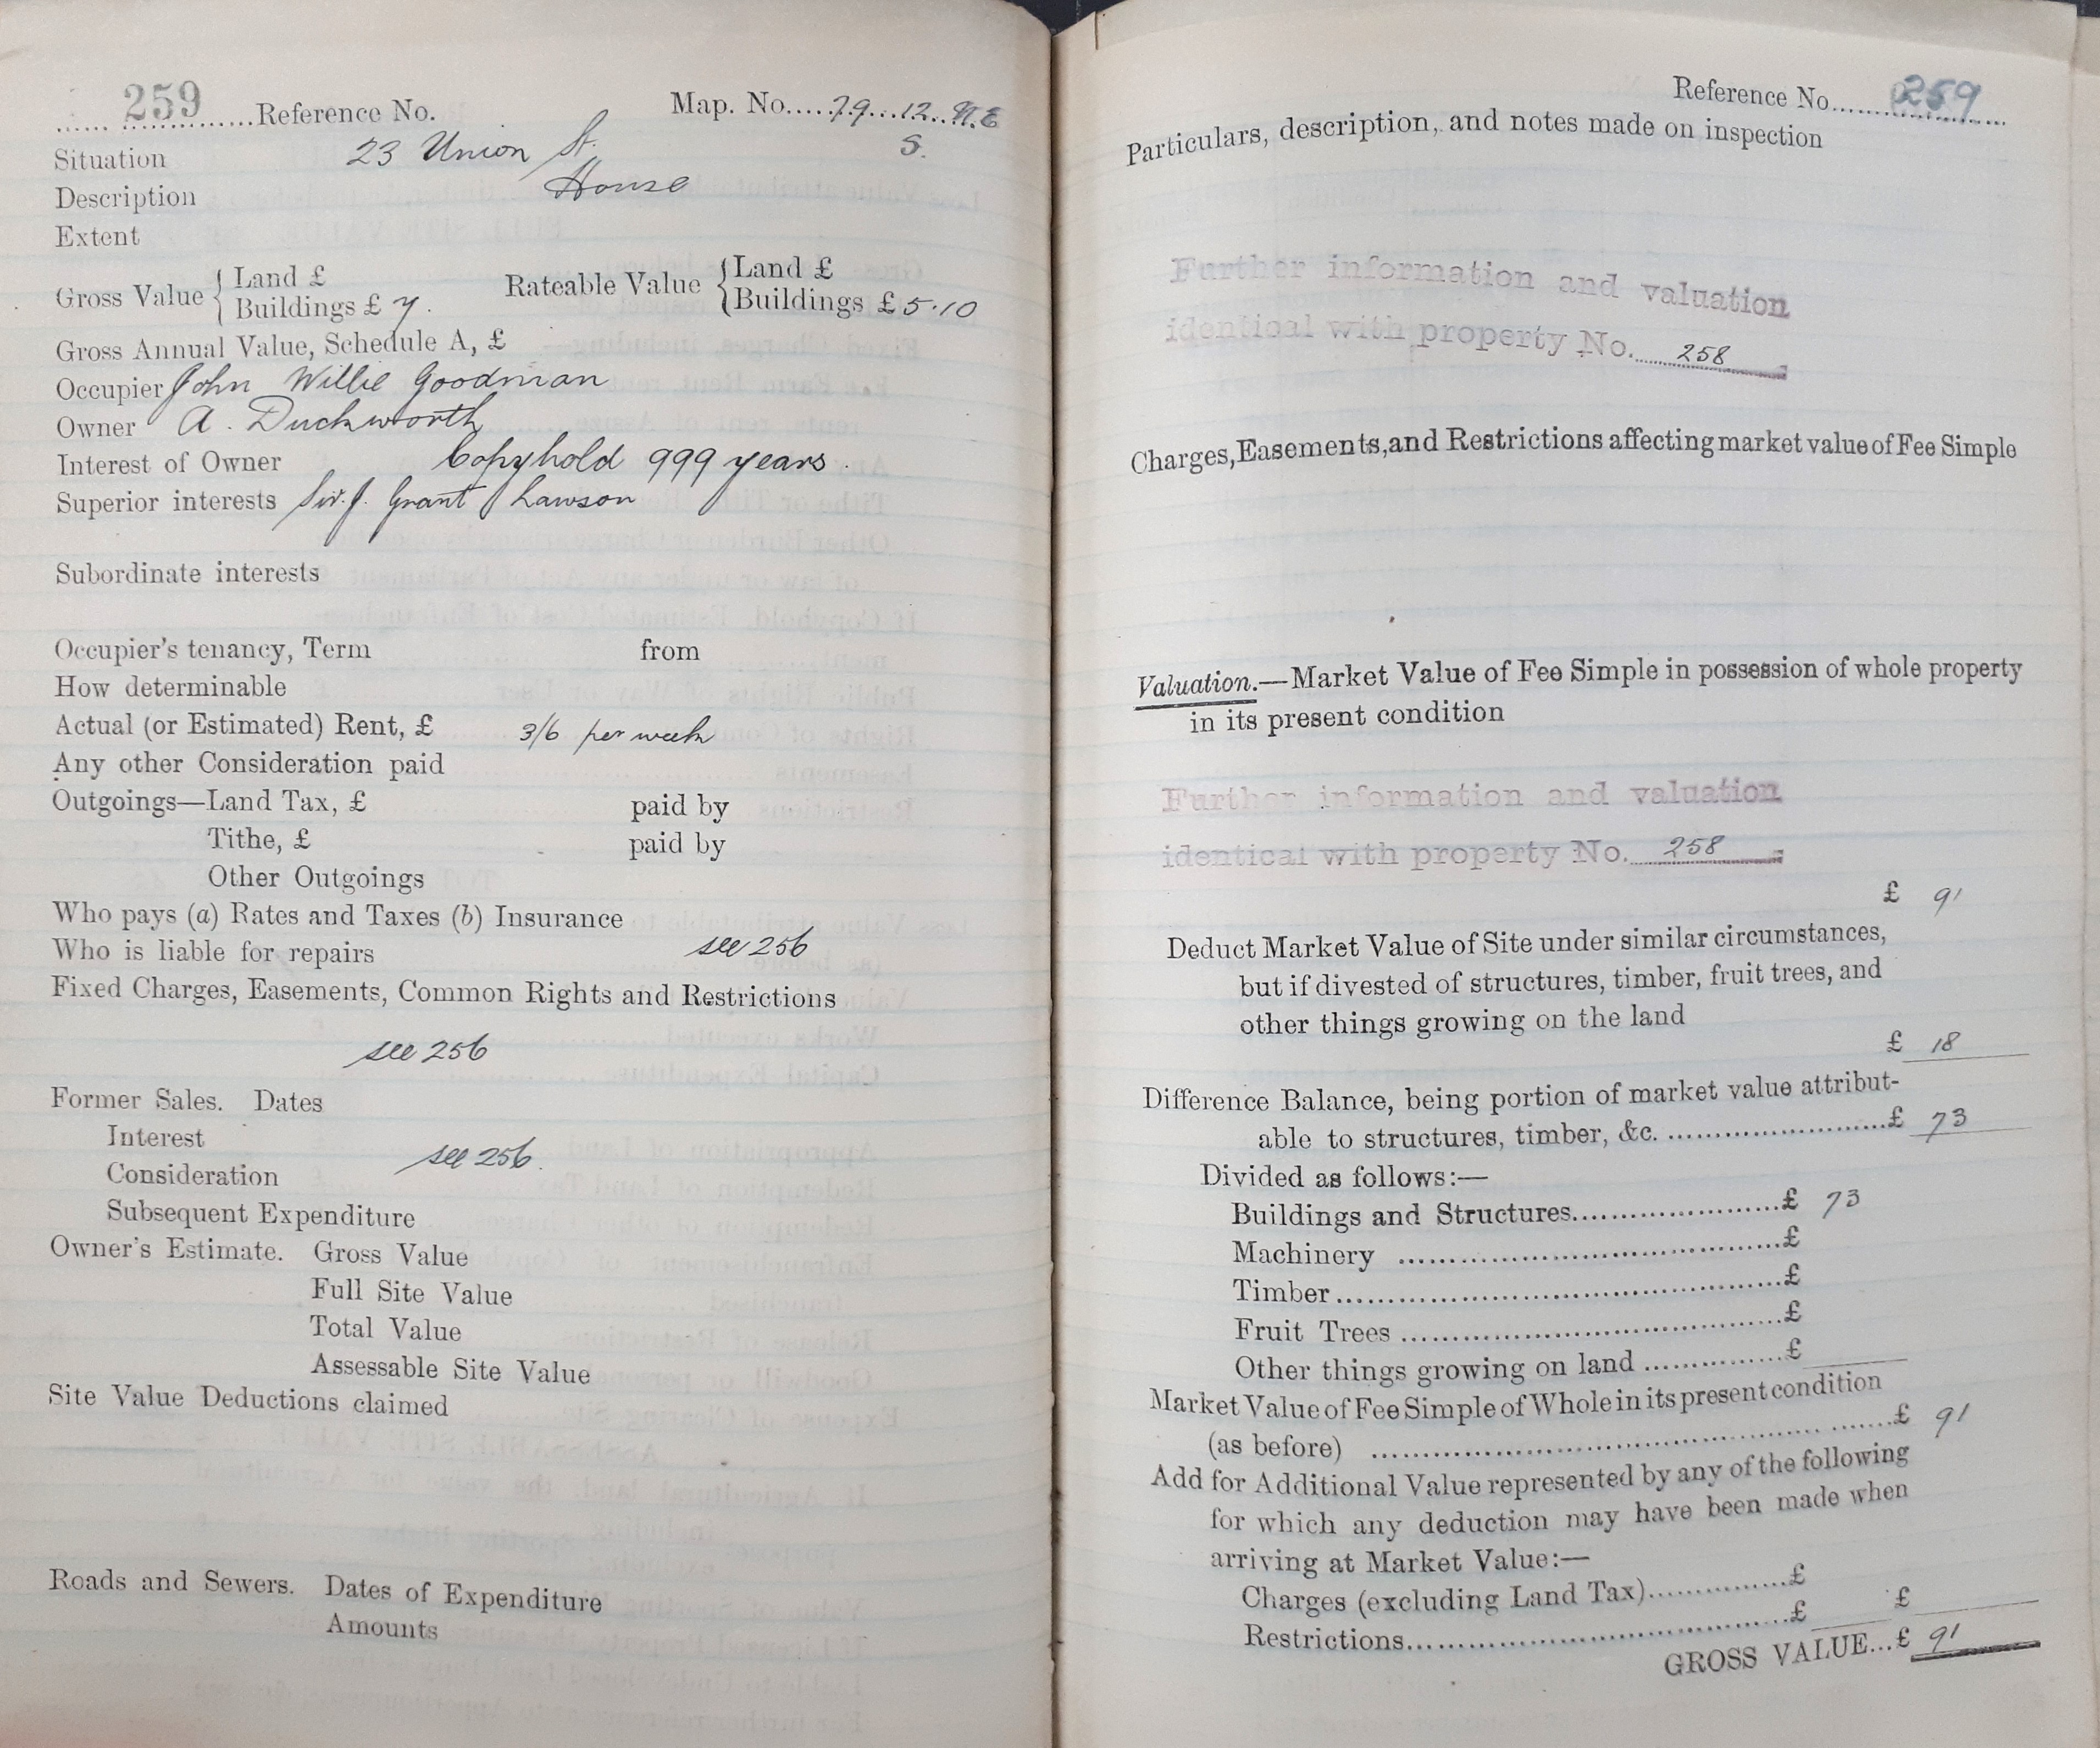 259 Reference No. Map. No. 79 12 N.E
S.
Situation 23 Union St.
Description House
Extent
Gross Value { Land £
Buildings £ 7. Rateable Value { Land £
Buildings £ 5.10
Gross Annual Value, Schedule A, £
Occupier John Willie Goodman
Owner A. Duckworth
Interest of Owner Copyhold 999 years.
Superior interests Sir. J. Grant Lawson
Subordinate interests
Occupier's tenancy, Term from
How determinable
Actual (or Estimated) Rent, £ 3/6 per week
Any other Consideration paid
Outgoings—Land Tax, £ paid by
Tithe, £ paid by
Other Outgoings
Who pays (a) Rates and Taxes (b) Insurance
Who is liable for repairs see 256
Fixed Charges, Easements, Common Rights and Restrictions
see 256
Former Sales. Dates
Interest
see 256.
Consideration
Subsequent Expenditure
Owner's Estimate. Gross Value
Full Site Value
Total Value
Assessable Site Value
Site Value Deductions claimed
Roads and Sewers. Dates of Expenditure
Amounts
Reference No. 259
Particulars, description, and notes made on inspection
Further information and valuation
identical with property No. 258
Charges, Easements, and Restrictions affecting market value of Fee Simple
Valuation.—Market Value of Fee Simple in possession of whole property
in its present condition
Further information and valuation
identical with property No. 258
£ 91
Deduct Market Value of Site under similar circumstances,
but if divested of structures, timber, fruit trees, and
other things growing on the land
£ 18
Difference Balance, being portion of market value attribut-
able to structures, timber, &c. £ 73
Divided as follows:—
Buildings and Structures £ 73
Machinery £
Timber £
Fruit Trees £
Other things growing on land £
Market Value of Fee Simple of Whole in its present condition
(as before) £ 91
Add for Additional Value represented by any of the following
for which any deduction may have been made when
arriving at Market Value:—
Charges (excluding Land Tax) £
Restrictions £ £
GROSS VALUE...£ 91